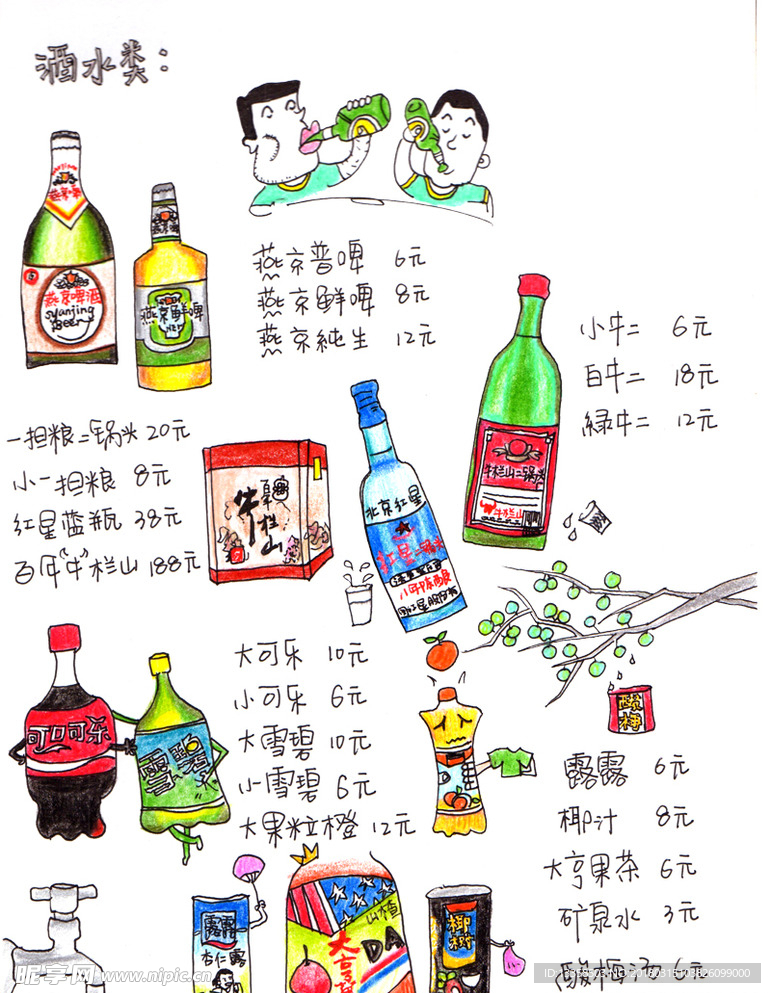 酒水类：
燕京普啤 6元
燕京鲜啤 8元
燕京純生 12元
燕京啤酒
yanjing
Beer
燕京鲜啤
小牛二 6元
白牛二 18元
緑牛二 12元
一担粮二锅头 20元
小一担粮 8元
红星蓝瓶 38元
百年"牛"栏山 188元
百年
牛栏山
北京红星
红星二锅头
八年陈酿
牛栏山二锅头
牛栏山
大可乐 10元
小可乐 6元
大雪碧 10元
小雪碧 6元
大果粒橙 12元
可口可乐
雪碧
酸梅
露露 6元
椰汁 8元
大亨果茶 6元
矿泉水 3元
酸梅汤 6元
露露
杏仁露
山楂
大亨
DA
椰树
昵享网 www.nipic.cn